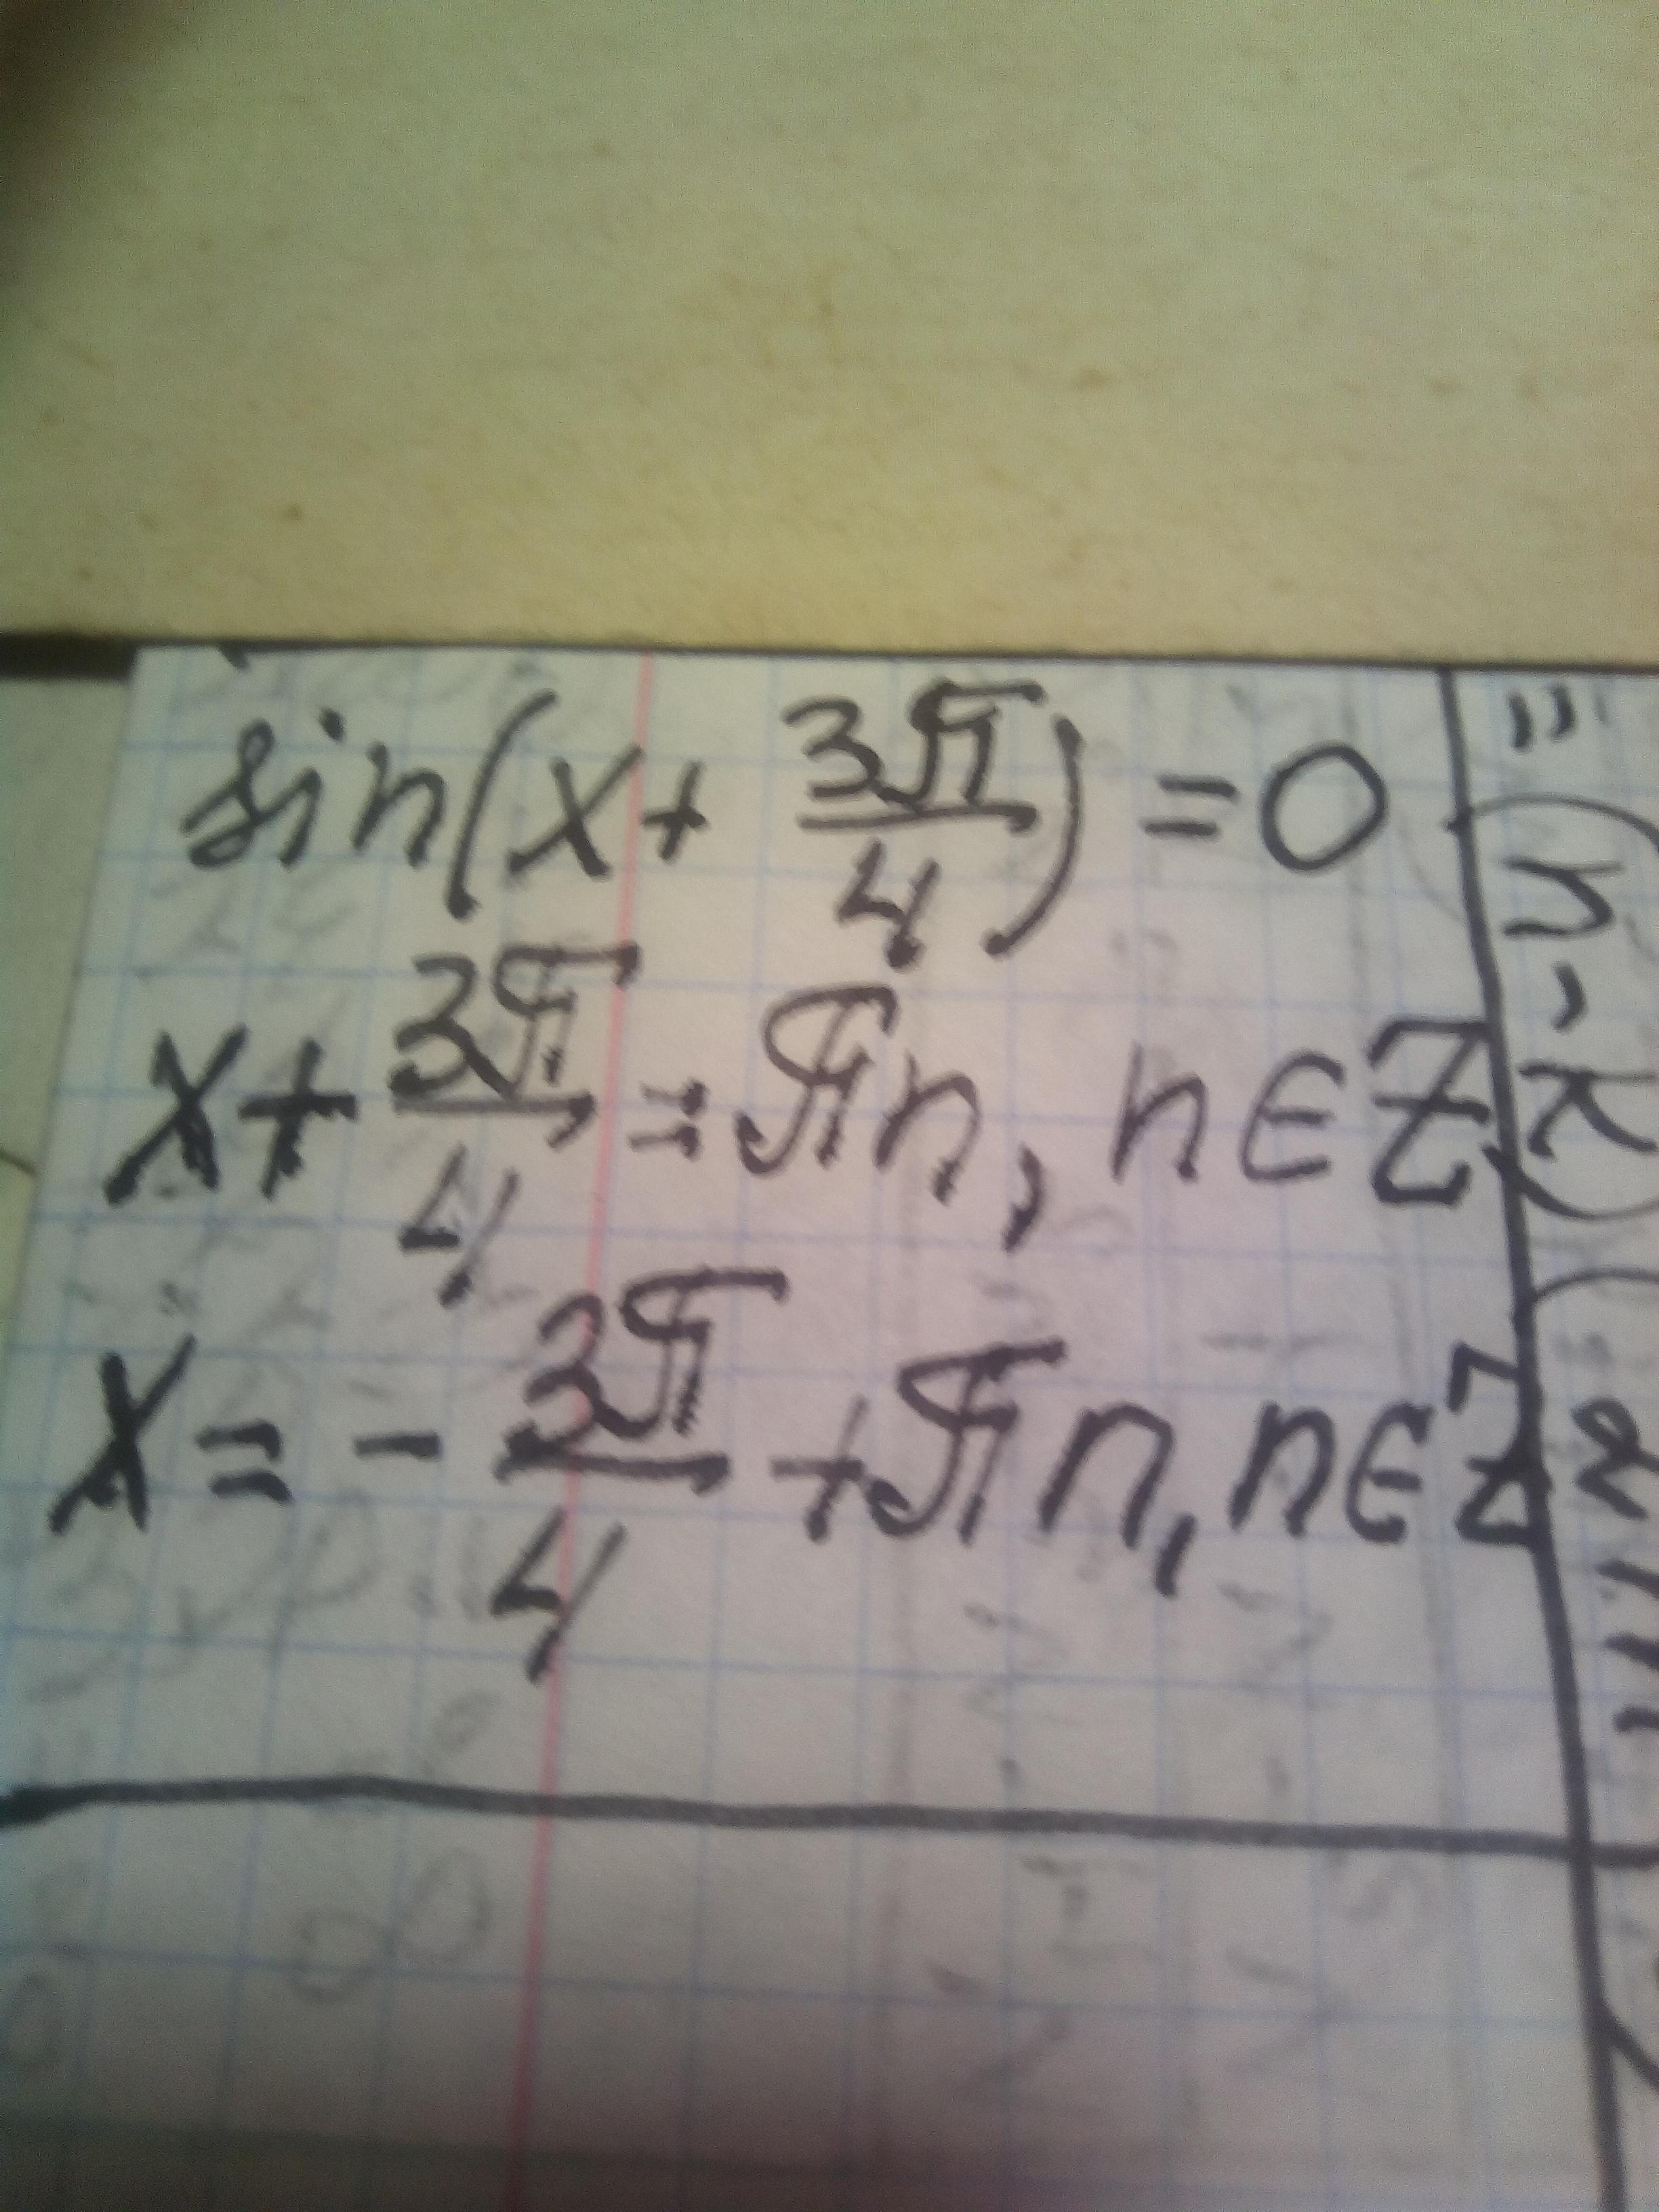 sin(x + 3π/4) = 0
x + 3π/4 = πn, n ∈ Z
x = - 3π/4 + πn, n ∈ Z